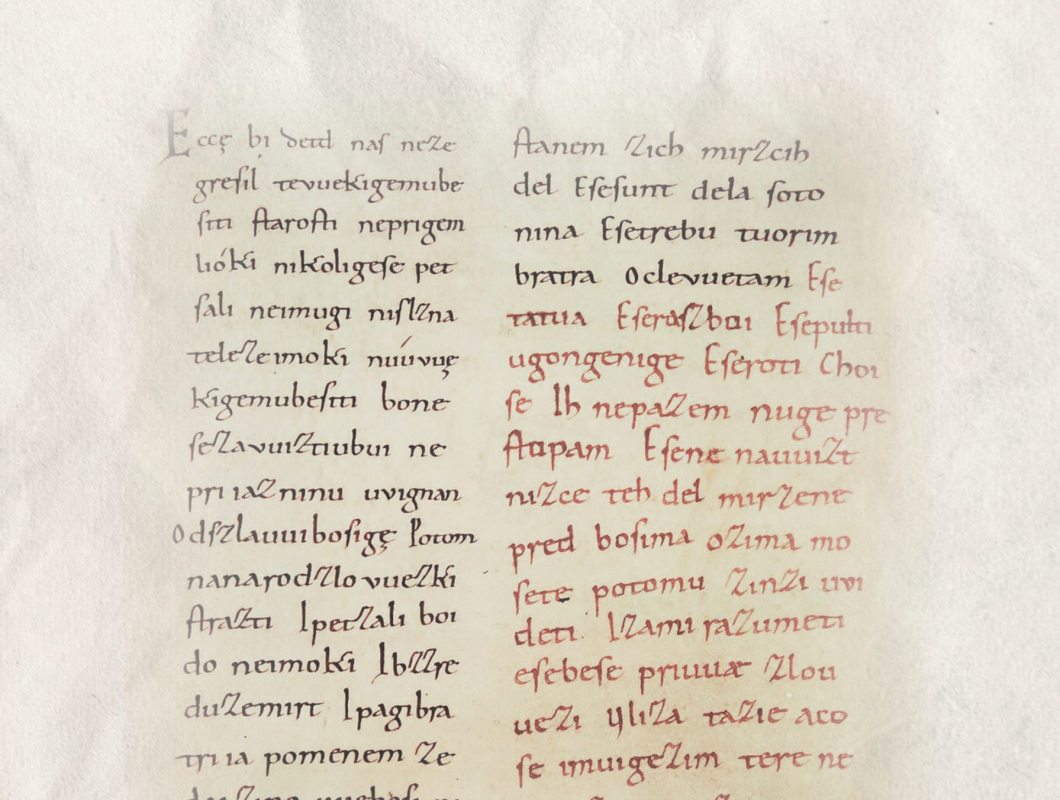 Eccę bi detd naſ neze
greſil tevuekigemube
ſiti ſtaroſti neprigem
lióki nikoligeſe pet
ſali neimugi niſlzna
telezeimoki niúvvę
kigemubeſiti bone
ſezavuiztiubui ne
pri iazninu uvignan
Odſzlauuiboſigę Potom
nanarodzlovuezki
ſtrazti Ipetzali boi
do neimoki Ibzzre
duzemirt Ipagibra
tri ia pomenem ze
ſtanem zich mirzcih
del Eſeſunt dela ſoto
nina Eſetrebu tuorim
bratra Oclevuetam Eſe
tatua Eſeraſzboi Eſepulti
ugongenige Eſeroti Choi
ſe Ih nepazem nuge pre
ſtopam Eſene nauuizt
nizce teh del mirzene
pred boſima ozima mo
ſete potomu zinzi uvi
deti. Izami razumeti
eſebeſe priuuæ zlou
uezi Ijliza tazie aco
ſe imuigezim tere ne